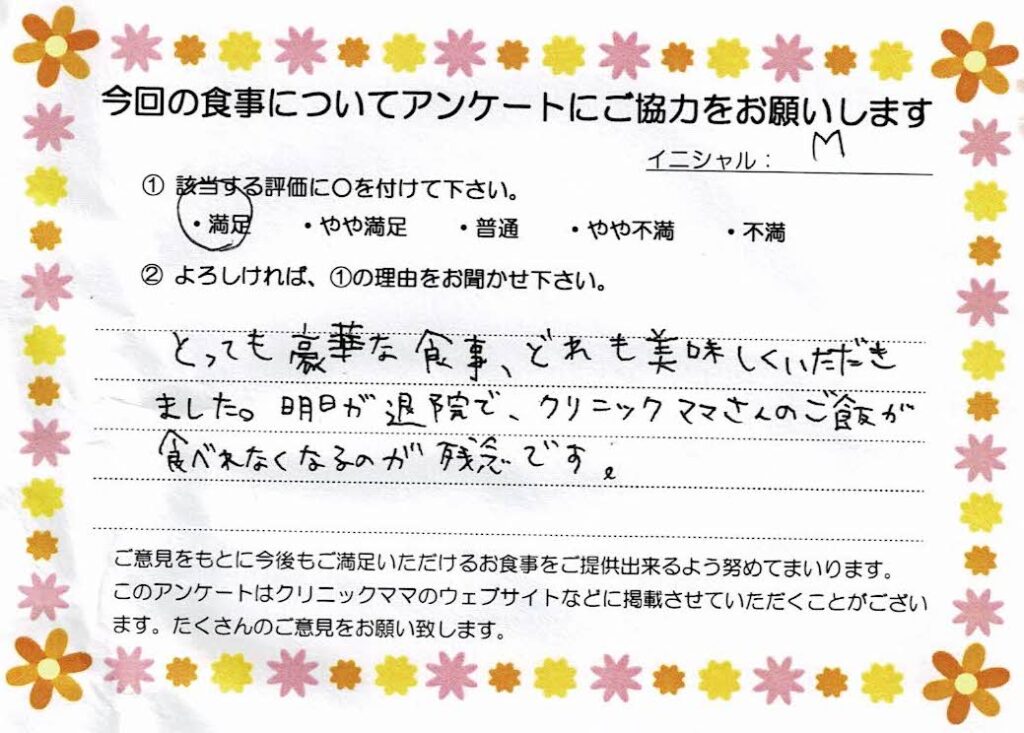 今回の食事についてアンケートにご協力をお願いします
イニシャル： M
① 該当する評価に〇を付けて下さい。
・満足 ・やや満足 ・普通 ・やや不満 ・不満
② よろしければ、①の理由をお聞かせ下さい。
とっても豪華な食事、どれも美味しくいただき
ました。明日が退院で、クリニックママさんのご飯が
食べれなくなるのが残念です。
ご意見をもとに今後もご満足いただけるお食事をご提供出来るよう努めてまいります。
このアンケートはクリニックママのウェブサイトなどに掲載させていただくことがござい
ます。たくさんのご意見をお願い致します。